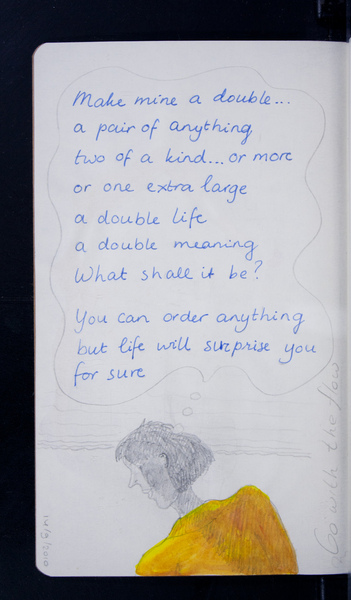 Make mine a double...
a pair of anything
two of a kind... or more
or one extra large
a double life
a double meaning
What shall it be?
You can order anything
but life will surprise you
for sure
Go with the flow
14/9/2010